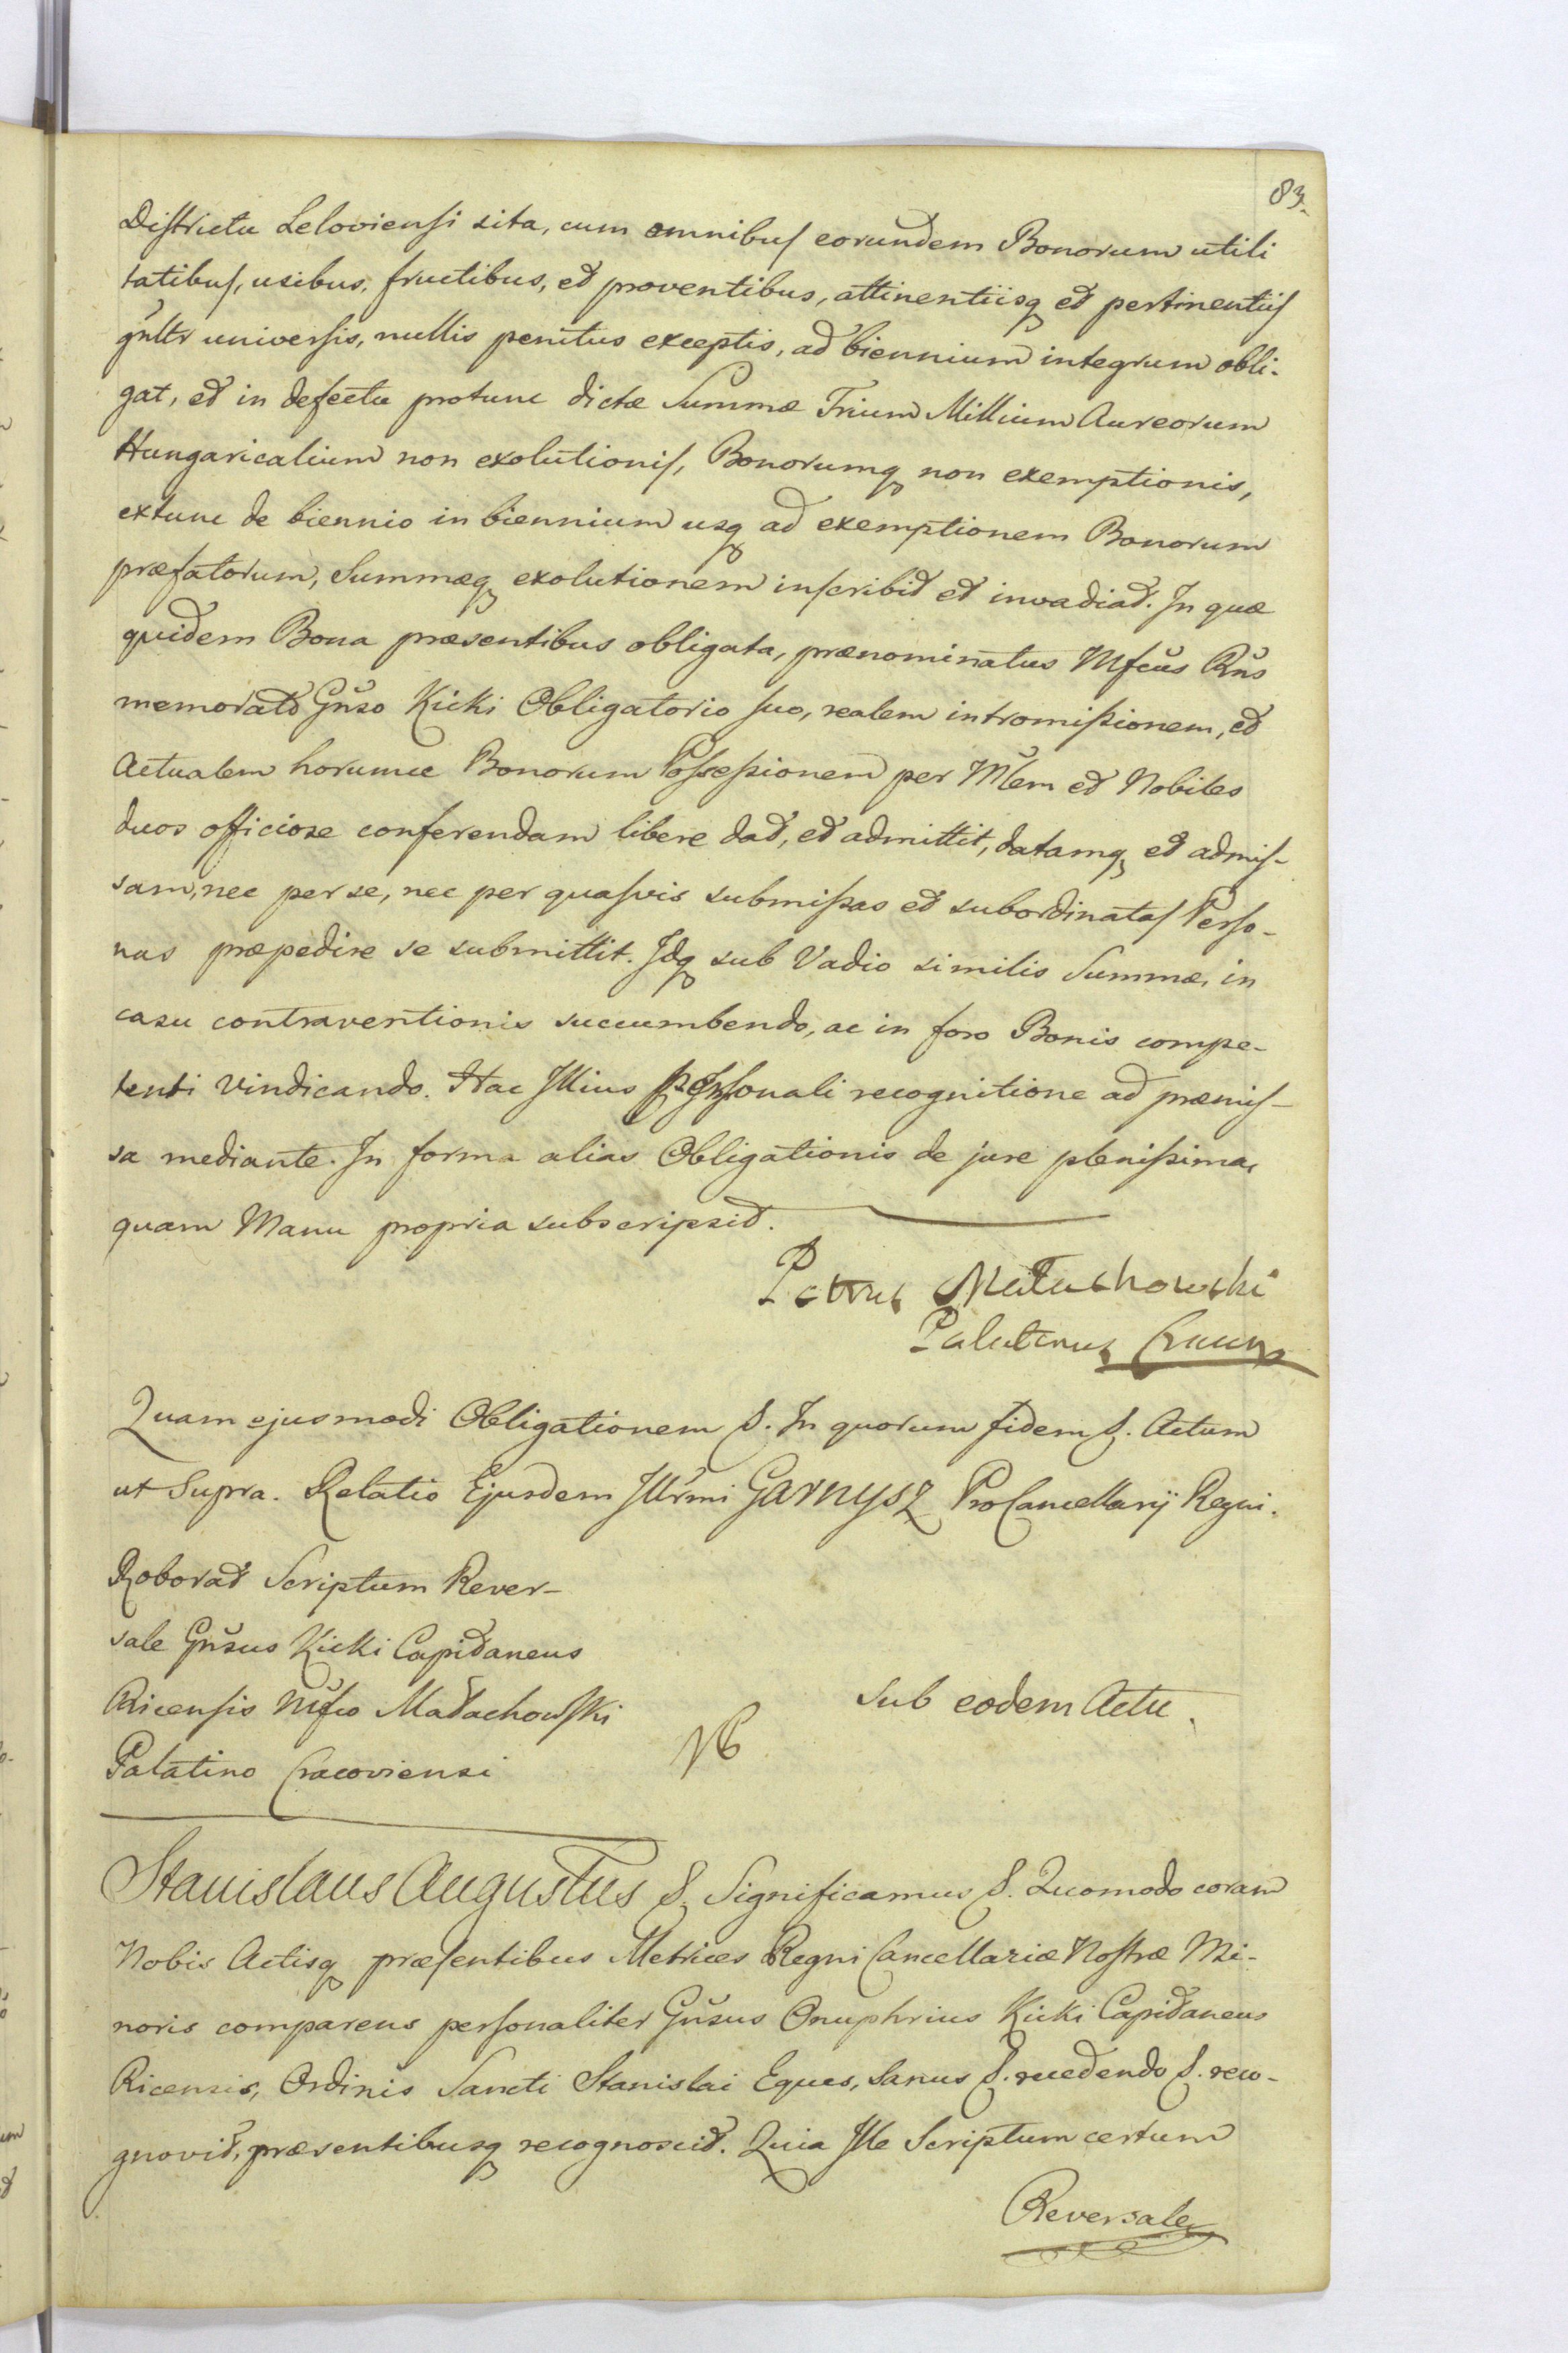 83.
Districtu Leloviensi sita, cum omnibus eorundem Bonorum utili
tatibus, usibus, fructibus, et proventibus, attinentiisq et pertinentiis
gnltr universis, nullis penitus exceptis, ad biennium integrum obli-
gat, et in defectu protunc dictæ Summæ Trium Millium Aureorum
Hungaricalium non exolutionis, Bonorumq non exemptionis,
extunc de biennio in biennium usq ad exemptionem Bonorum
præfatorum, Summæq exolutionem inscribit et invadiat. In quæ
quidem Bona præsentibus obligata, prænominatus Mfcus Rns
memorato Gnso Kicki Obligatorio suo, realem intromissionem, et
Actualem horumce Bonorum Possessionem per Mlem et Nobiles
duos officiose conferendam libere dat, et admittit, datamq et admis-
sam, nec per se, nec per quasvis submissas et subordinatas Perso-
nas præpedire se submittit. Idq sub Vadio similis Summæ, in
casu contraventionis succumbendo, ac in foro Bonis compe-
tenti vindicando. Hac Illius personali recognitione ad præmis-
sa mediante. In forma alias Obligationis de jure plenissima,
quam Manu propria subscripsit.
Petrus Małachowski
Palatinus Cracov
Quam ejusmodi Obligationem &. In quorum fidem &. Actum
ut Supra. Relatio Ejusdem Illrmi Garnysz ProCancellarij Regni.
Roborat Scriptum Rever-
sale Gnsus Kicki Capitaneus
Ricensis Mfco Małachowski
Palatino Cracoviensi
NB
Sub eodem Actu.
Stanislaus Augustus &. Significamus &. Quomodo coram
Nobis Actisq præsentibus Metrices Regni Cancellariæ Nostræ Mi-
noris comparens personaliter Gnsus Onuphrius Kicki Capitaneus
Ricensis, Ordinis Sancti Stanislai Eques, sanus &. recedendo &. reco-
gnovit, præsentibusq recognoscit. Quia Ille Scriptum certum
Reversale